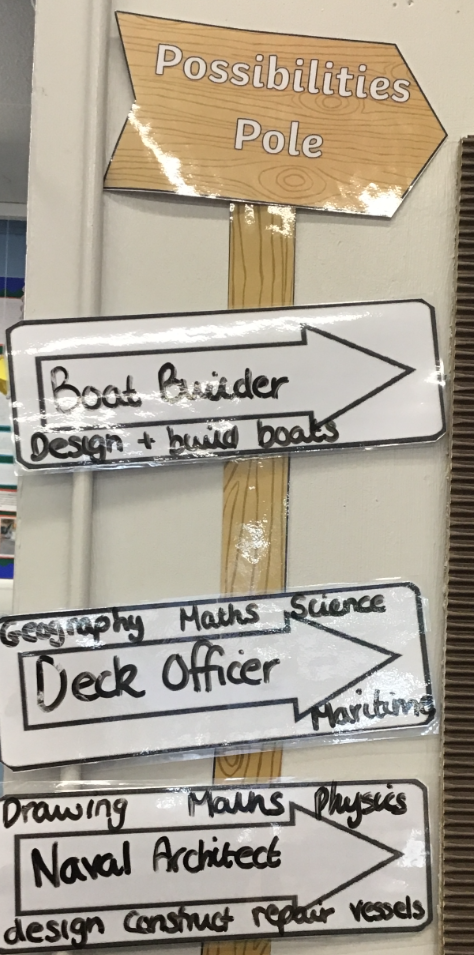 Possibilities
Pole
Boat Builder
Design + build boats
Geography Maths Science
Deck Officer
Maritime
Drawing Maths Physics
Naval Architect
design construct repair vessels